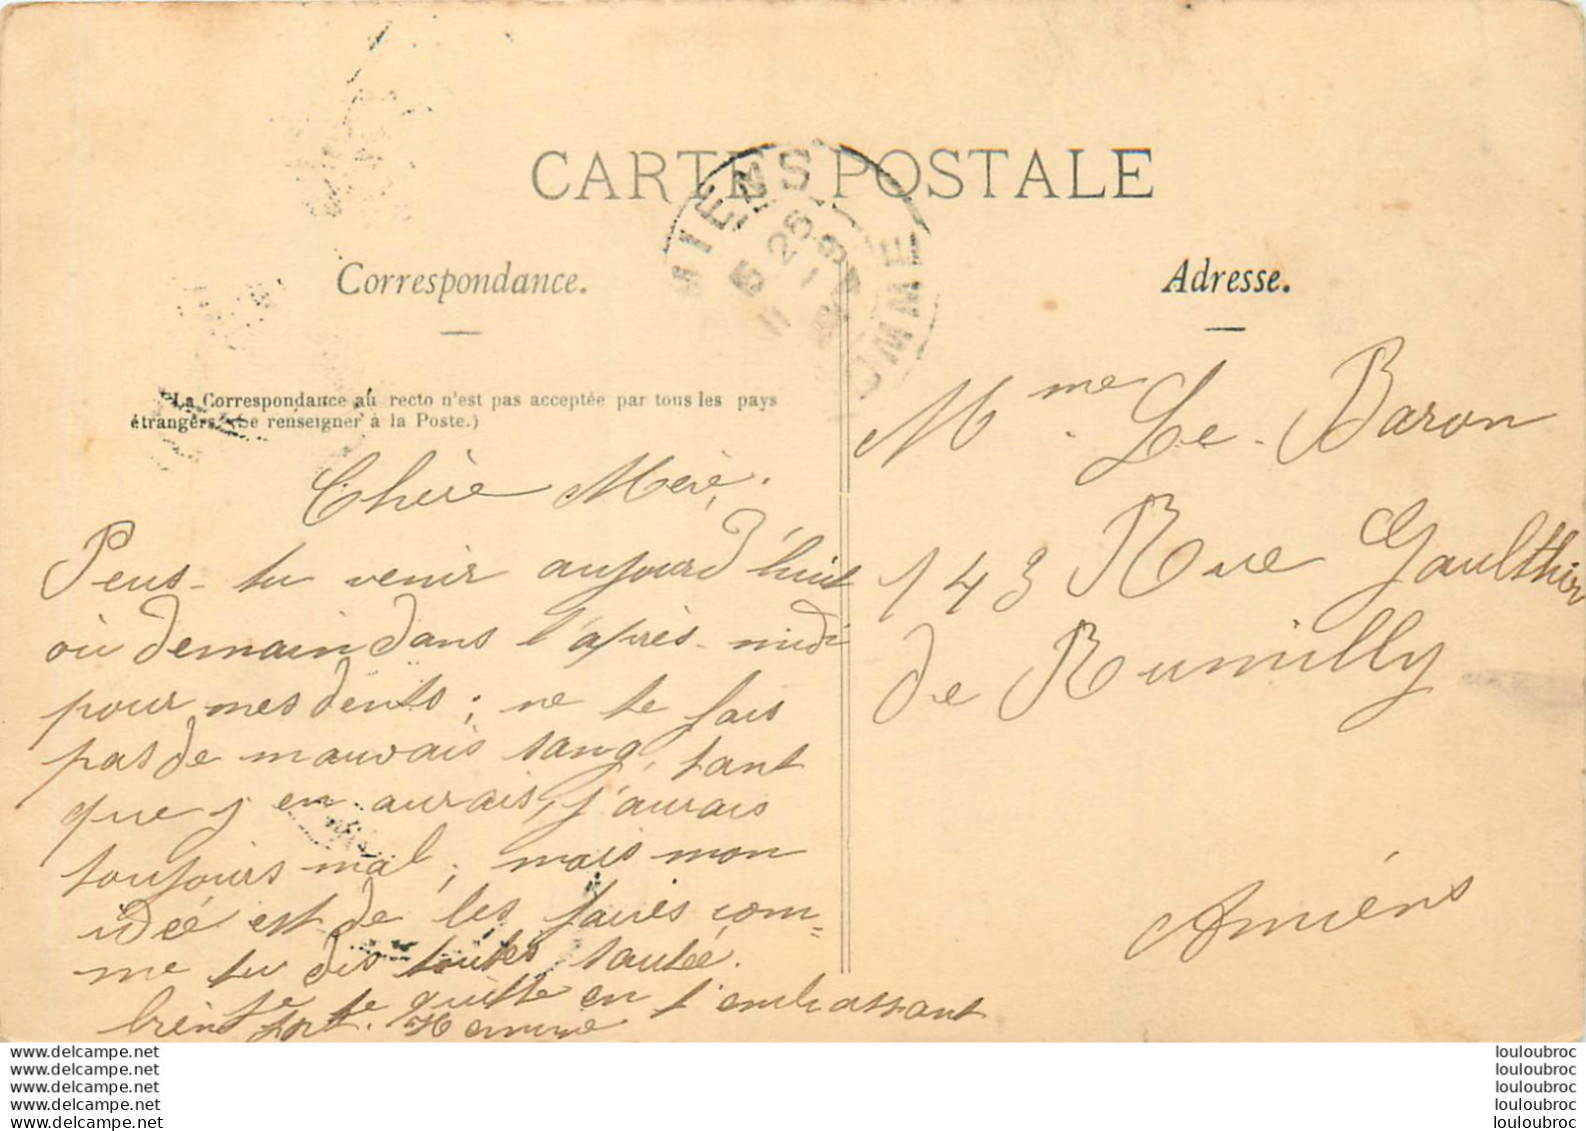 CARTE POSTALE
AMIENS
SOMME
Correspondance.
Adresse.
La Correspondance au recto n'est pas acceptée par tous les pays
étrangers. (Se renseigner à la Poste.)
Chère Mère.
Peus-tu venir aujourd'huit
où demain dans l'après-midi
pour mes dents; ne te fais
pas de mauvais sang, tant
que j'en aurais, j'aurais
toujours mal; mais mon
idée est de les faires com=
me tu dis toutes sautée.
Je te quitte en t'embrassant
bien fort.
Mme Le Baron
143 Rue Gaulthier
de Rumilly
Amiéns
www.delcampe.net
www.delcampe.net
www.delcampe.net
www.delcampe.net
www.delcampe.net
louloubroc
louloubroc
louloubroc
louloubroc
louloubroc